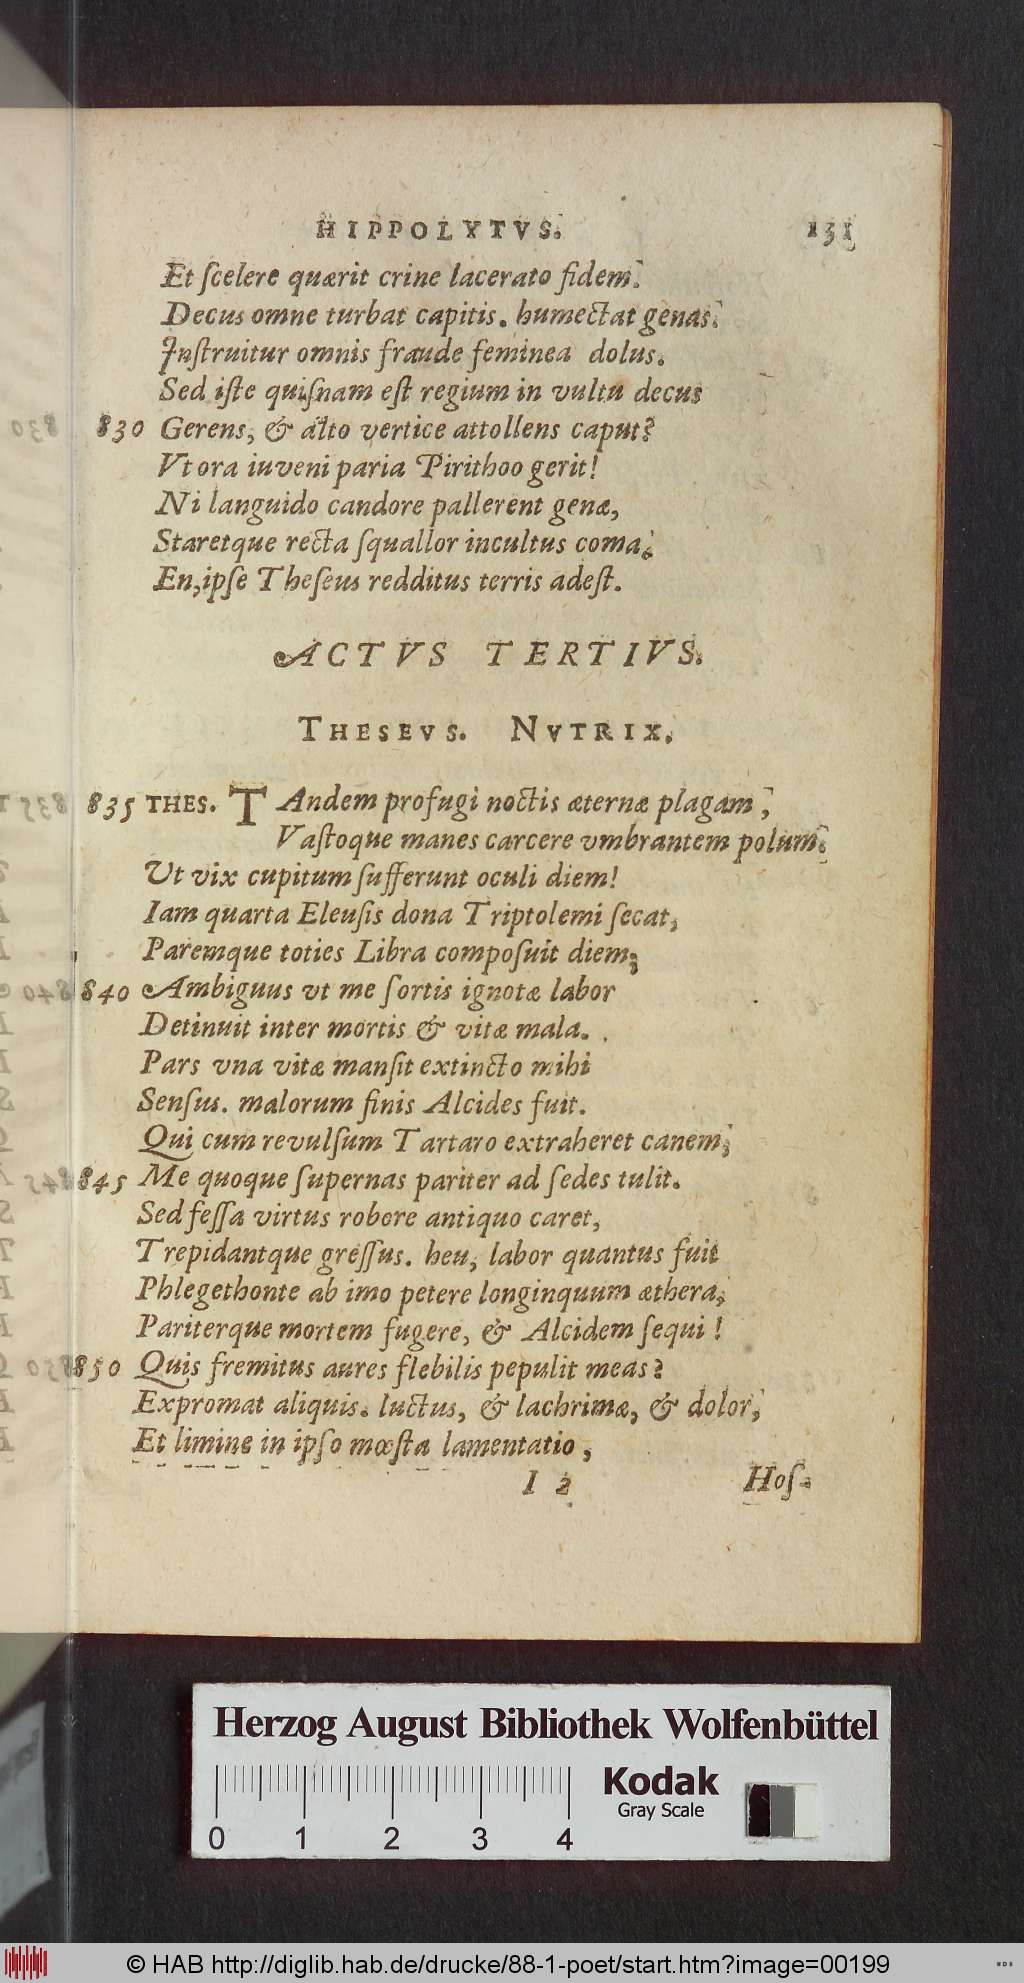 HIPPOLYTVS. 131
Et ſcelere quærit crine lacerato fidem.
Decus omne turbat capitis. humectat genas.
Inſtruitur omnis fraude feminea dolus.
Sed iſte quiſnam eſt regium in vultu decus
830 Gerens, & alto vertice attollens caput?
Vt ora iuveni paria Pirithoo gerit!
Ni languido candore pallerent genæ,
Staretque recta ſquallor incultus coma;
En, ipſe Theſeus redditus terris adeſt.
ACTVS TERTIVS.
THESEVS. NVTRIX.
835 THES. TAndem profugi noctis æternæ plagam,
Vaſtoque manes carcere vmbrantem polum:
Ut vix cupitum ſufferunt oculi diem!
Iam quarta Eleuſis dona Triptolemi ſecat,
Paremque toties Libra compoſuit diem;
840 Ambiguus vt me ſortis ignotæ labor
Detinuit inter mortis & vitæ mala.
Pars vna vitæ manſit extincto mihi
Senſus. malorum finis Alcides fuit.
Qui cum revulſum Tartaro extraheret canem;
845 Me quoque ſupernas pariter ad ſedes tulit.
Sed feſſa virtus robore antiquo caret,
Trepidantque greſſus. heu, labor quantus fuit
Phlegethonte ab imo petere longinquum æthera;
Pariterque mortem fugere, & Alcidem ſequi!
850 Quis fremitus aures flebilis pepulit meas?
Expromat aliquis. luctus, & lachrimæ, & dolor,
Et limine in ipſo mœſta lamentatio,
I 2 Hoſ-
Herzog August Bibliothek Wolfenbüttel
Kodak
Gray Scale
0 1 2 3 4
© HAB http://diglib.hab.de/drucke/88-1-poet/start.htm?image=00199